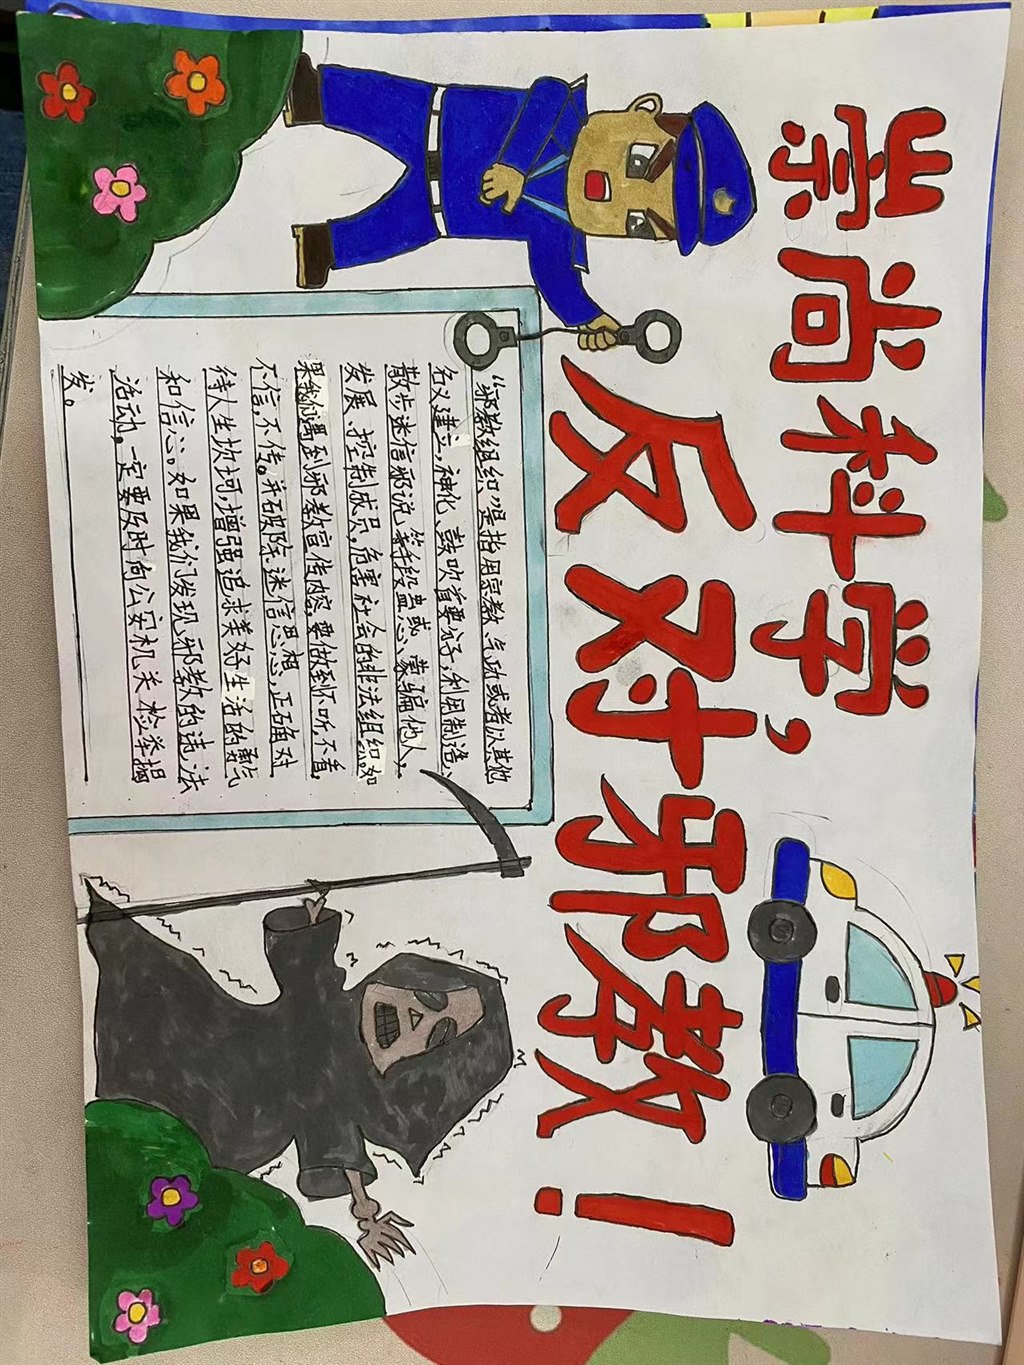 崇尚科学，
反对邪教！
“邪教组织”是指用宗教、气功或者以其他
名义建立，神化、鼓吹首要分子，利用制造、
散步迷信邪说等手段蛊惑、蒙骗他人，
发展、控制成员，危害社会的非法组织。如
果我们遇到邪教宣传内容，要做到不听，不看，
不信，不传。并破除迷信思想，正确对
待人生坎坷，增强追求美好生活的勇气
和信心。如果我们发现邪教的违法
活动，一定要及时向公安机关检举揭
发。